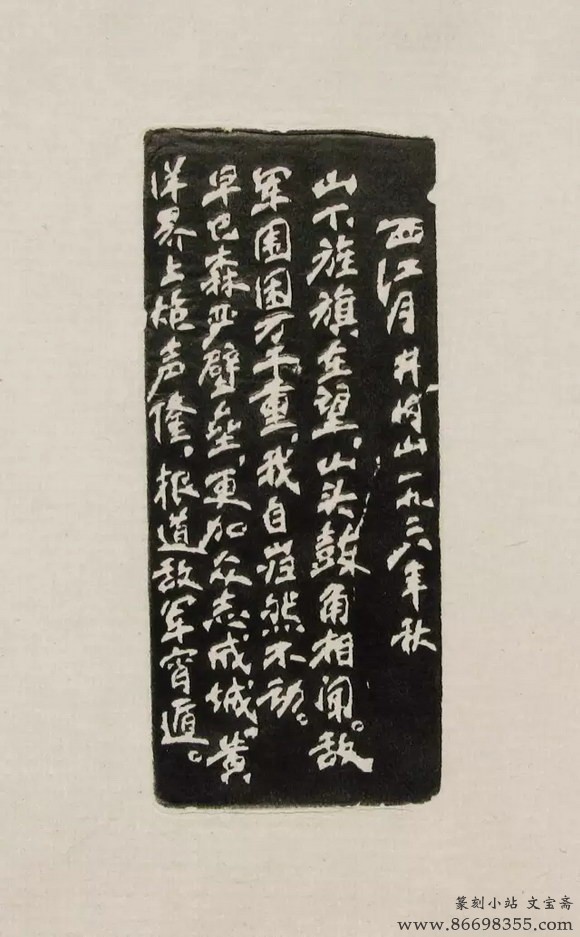 西江月 井冈山 一九二八年秋
山下旌旗在望,山头鼓角相闻。敌
军围困万千重,我自岿然不动。
早已森严壁垒,更加众志成城。黄
洋界上炮声隆,报道敌军宵遁。
篆刻小站 文宝斋
www.86698355.com